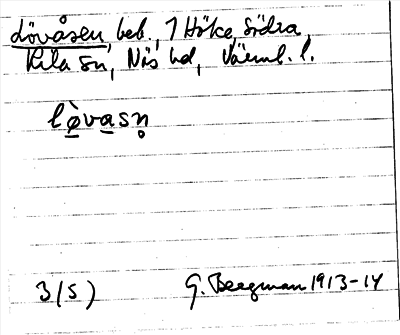 Lövåsen, beb., 7 Höke, Södra
Kila sn, Näs hd, Värml. l.
lø̠̀va̠sn̥
3(5) G. Bergman 1913-14